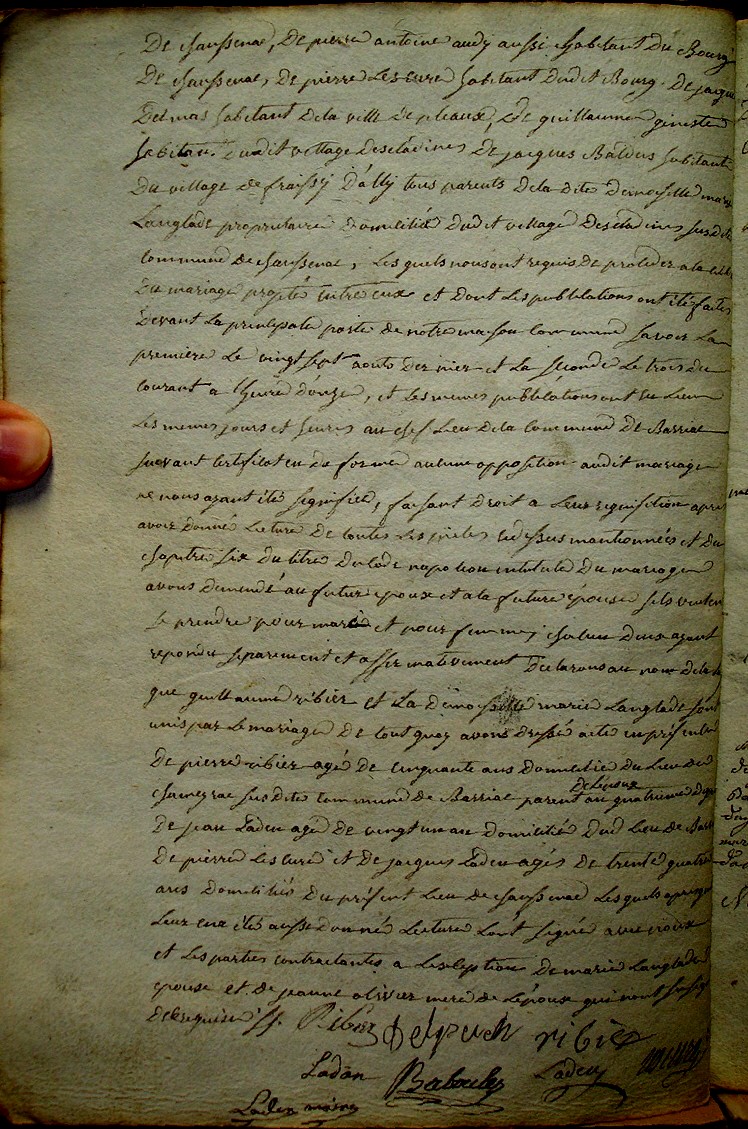 De chaussenac, De pierre antoine audy aussi habitant Du Bourg
De chaussenac, De pierre Lescure habitant Dudit Bourg. De jacques
Delmas habitant Dela ville De pleaux, & De guillaume ginestes
habitan. Dudit village Desclidines De jacques Baldus habitant
Du village De fraissy D'ally tous parents Dela Dite Demoiselle marie
Langlade propriutaire Domiciliée Dudit village susdite
Commune De chaussenac, Les quels nous ont requis De proceder a la
Du mariage projeté entre eux et Dont Les publications ont été faites
Devant La principale porte De notre maison Commune savoir La
premiere Le vingt sept aouts Dernier et La seconde Le trois du
Courant a Lheure D'onze, et Les mêmes publications ont eu Lieu
Les memes jours et heures au chef Lieu Dela Commune De Barriac
suivant Certificat en due forme aucune opposition audit mariage
ne nous ayant été signifiée, faisant Droit a Leur requisition apres
avoir Donné Lecture De toutes Les pieces cidessus mantionnées et Du
chapitre six Du titre Du Code napoleon intitulé Du mariage
avons Demandé au futur epoux et a la future epouse sils veulent
se prendre pour mari et pour femme, chacun Deux ayant
repondu separement et affirmativement Declarons au nom Dela Loy
que guillaume ribier et La Demoiselle marie Langlade sont
unis par Le mariage De tout quoy avons Dressé acte en présence
De pierre ribier agé De Cinquante ans Domicilié Du Lieu De
chameyrac susdite Commune De Barriac parent De Lépoux au quatrieme Degré
De jean Ladeu agé De vingt un an Domicilié Dud Lieu De Barriac
De pierre Lescure et De jacques Ladeu agés De trente quatre
ans Domiciliés Du présent Lieu De chaussenac Les quels apres que
Leur en a été aussi Donnée Lecture Lont signée avec nous
et Les parties contractantes a Lexception De marie Langlade
epouse et De jeanne olivier mere De Lépoux qui nont su signer
De Ce requises ff. Ribier Delpuch ribier
Ladan Baboulry Ladeu
Laden maire